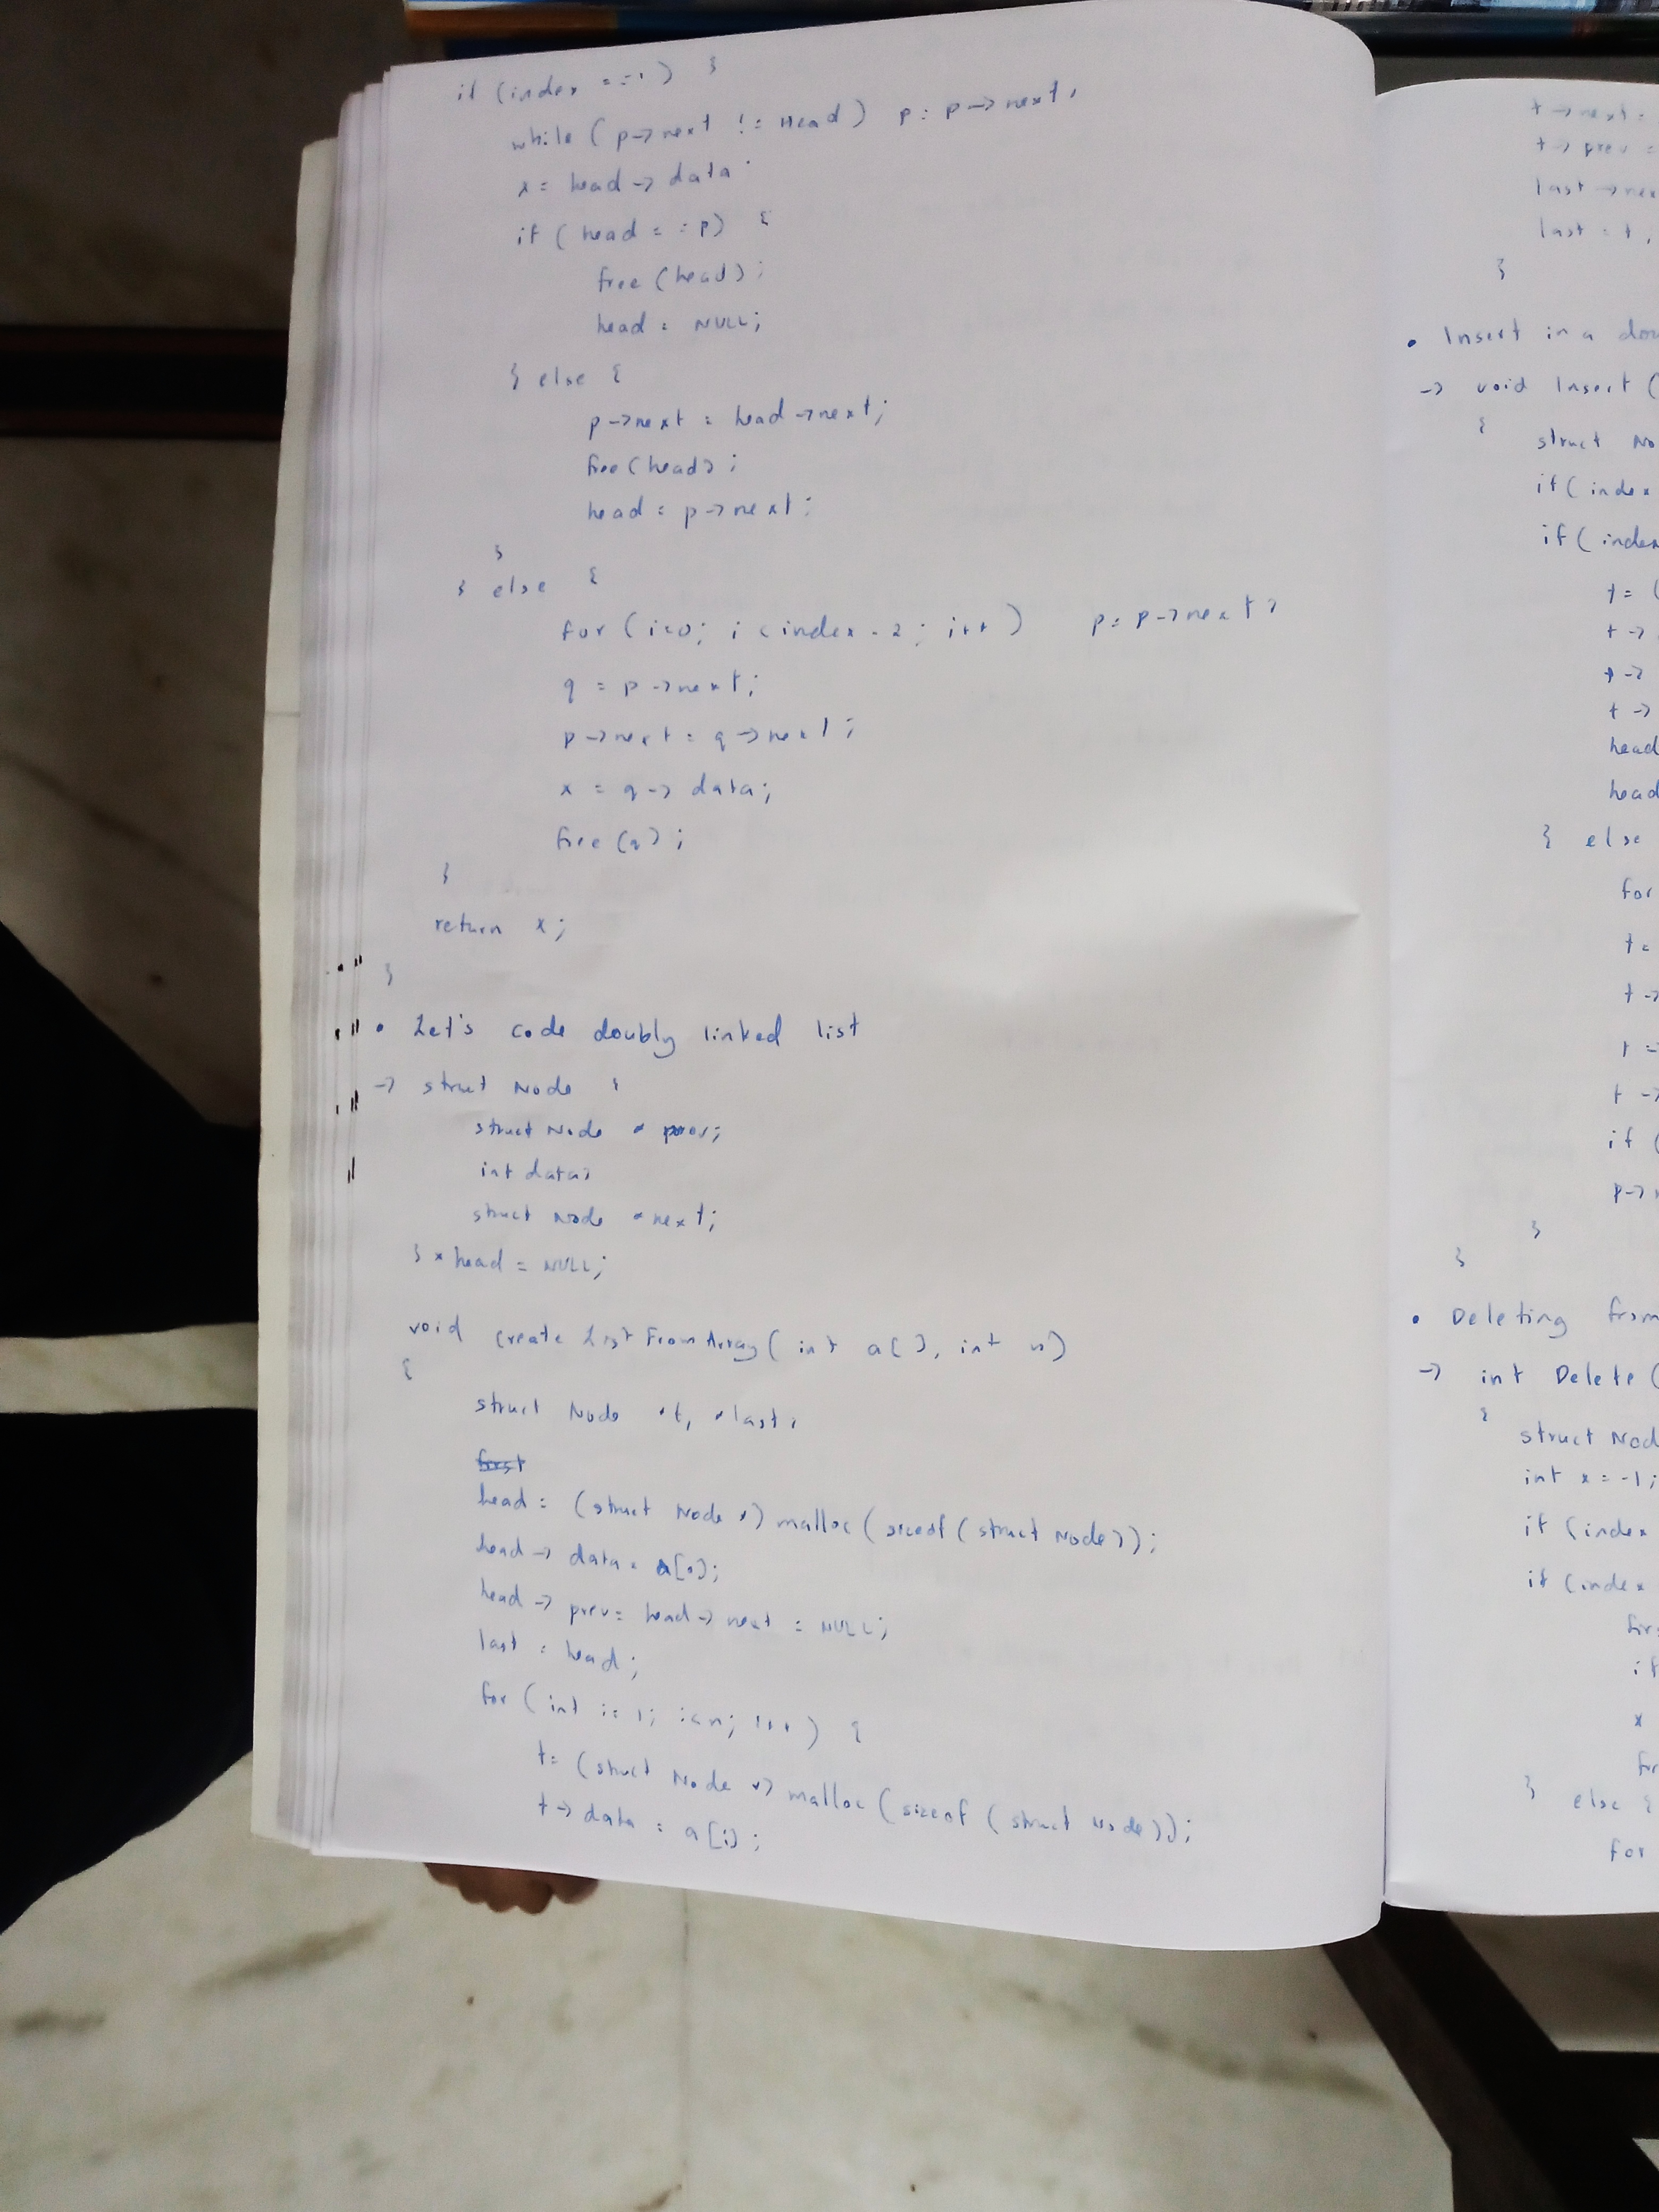 if (index == 1) {
while (p->next != Head) p = p->next;
x = head -> data;
if (head == p) {
free (head);
head = NULL;
} else {
p->next = head->next;
free(head);
head = p->next;
}
} else {
for (i=0; i<index-2; i++) p = p->next;
q = p->next;
p->next = q->next;
x = q-> data;
free (q);
}
return x;
}
• Let's code doubly linked list
-> struct Node {
struct Node * prev;
int data;
struct Node *next;
} *head = NULL;
void createListFromArray( int a[], int n)
{
struct Node *t, *last;
first
head = (struct Node *) malloc (sizeof (struct Node));
head -> data = a[0];
head -> prev = head -> next = NULL;
last = head;
for (int i=1; i<n; i++) {
t = (struct Node *) malloc (sizeof (struct Node));
t -> data = a[i];
t -> next =
t -> prev =
last -> nex
last = t;
}
• Insert in a dou
-> void Insert (
{
struct No
if( index
if( index
t = (
t ->
t ->
head
head
} else
for
t =
t ->
t =
t ->
if (
p->
}
}
• Deleting from
-> int Delete (
{
struct Nod
int x = -1;
if (index
if (index
firs
if
x
fr
} else {
for